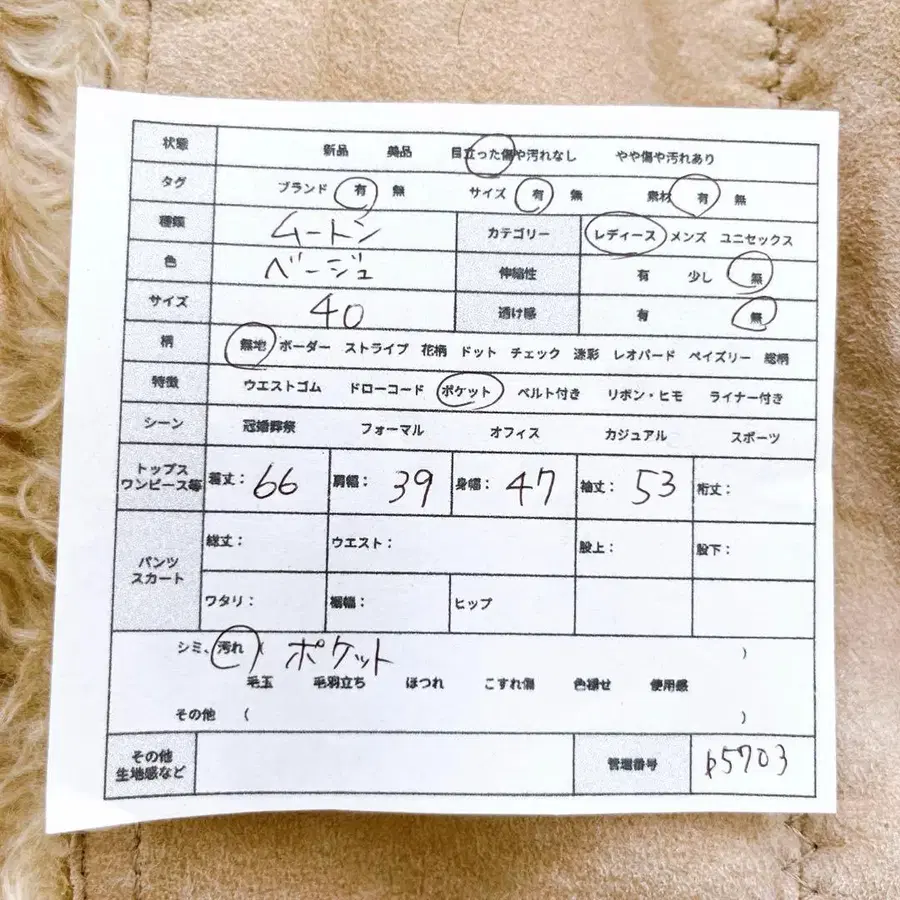 状態 新品 美品 目立った傷や汚れなし やや傷や汚れあり
タグ ブランド 有 無 サイズ 有 無 素材 有 無
種類 ムートン カテゴリー レディース メンズ ユニセックス
色 ベージュ 伸縮性 有 少し 無
サイズ 40 透け感 有 無
柄 無地 ボーダー ストライプ 花柄 ドット チェック 迷彩 レオパード ペイズリー 総柄
特徴 ウエストゴム ドローコード ポケット ベルト付き リボン・ヒモ ライナー付き
シーン 冠婚葬祭 フォーマル オフィス カジュアル スポーツ
トップス
ワンピース等 着丈: 66 肩幅: 39 身幅: 47 袖丈: 53 裄丈:
パンツ
スカート 総丈: ウエスト: 股上: 股下:
ワタリ: 裾幅: ヒップ
シミ、汚れ ( ポケット )
毛玉 毛羽立ち ほつれ こすれ傷 色褪せ 使用感
その他 ( )
その他
生地感など 管理番号 p5703